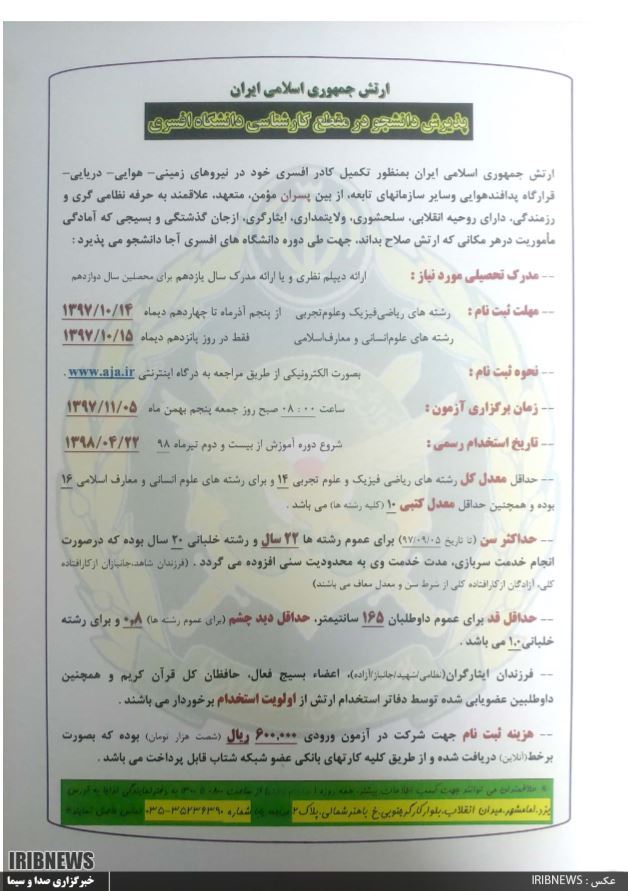 ارتش جمهوری اسلامی ایران
پذیرش دانشجو در مقطع کارشناسی دانشگاه افسری
ارتش جمهوری اسلامی ایران بمنظور تکمیل کادر افسری خود در نیروهای زمینی- هوایی- دریایی-
قرارگاه پدافندهوایی وسایر سازمانهای تابعه، از بین پسران مؤمن، متعهد، علاقمند به حرفه نظامی گری و
رزمندگی، دارای روحیه انقلابی، سلحشوری، ولایتمداری، ایثارگری، ازجان گذشتگی و بسیجی که آمادگی
مأموریت درهر مکانی که ارتش صلاح بداند، جهت طی دوره دانشگاه های افسری آجا دانشجو می پذیرد :
-- مدرک تحصیلی مورد نیاز : ارائه دیپلم نظری و یا ارائه مدرک سال یازدهم برای محصلین سال دوازدهم
-- مهلت ثبت نام : رشته های ریاضی‌فیزیک وعلوم‌تجربی از پنجم آذرماه تا چهاردهم دیماه ۱۳۹۷/۱۰/۱۴
رشته های علوم‌انسانی و معارف‌اسلامی فقط در روز پانزدهم دیماه ۱۳۹۷/۱۰/۱۵
-- نحوه ثبت نام : بصورت الکترونیکی از طریق مراجعه به درگاه اینترنتی www.aja.ir .
-- زمان برگزاری آزمون : ساعت ۰۸:۰۰ صبح روز جمعه پنجم بهمن ماه ۱۳۹۷/۱۱/۰۵
-- تاریخ استخدام رسمی : شروع دوره آموزش از بیست و دوم تیرماه ۹۸ ۱۳۹۸/۰۴/۲۲
-- حداقل معدل کل رشته های ریاضی فیزیک و علوم تجربی ۱۴ و برای رشته های علوم انسانی و معارف اسلامی ۱۶
بوده و همچنین حداقل معدل کتبی ۱۰ (کلیه رشته ها) می باشد .
-- حداکثر سن (تا تاریخ ۹۷/۰۹/۰۵) برای عموم رشته ها ۲۲ سال و رشته خلبانی ۲۰ سال بوده که درصورت
انجام خدمت سربازی، مدت خدمت وی به محدودیت سنی افزوده می گردد . (فرزندان شاهد،جانبازان ازکارافتاده
کلی، آزادگان ازکارافتاده کلی از شرط سن و معدل معاف می باشند)
-- حداقل قد برای عموم داوطلبان ۱۶۵ سانتیمتر، حداقل دید چشم (برای عموم رشته ها) ۰٫۸ و برای رشته
خلبانی ۱٫۰ می باشد .
-- فرزندان ایثارگران(نظامی/شهید/جانباز/آزاده)، اعضاء بسیج فعال، حافظان کل قرآن کریم و همچنین
داوطلبین عضویابی شده توسط دفاتر استخدام ارتش از اولویت استخدام برخوردار می باشند .
-- هزینه ثبت نام جهت شرکت در آزمون ورودی ۶۰۰٫۰۰۰ ریال (شصت هزار تومان) بوده که بصورت
برخط(آنلاین) دریافت شده و از طریق کلیه کارتهای بانکی عضو شبکه شتاب قابل پرداخت می باشد .
علاقمندان می توانند جهت کسب اطلاعات بیشتر، همه روزه از ساعت به آدرس
یزد،امامشهر،میدان انقلاب،بلوارکارگرجنوبی،خ باهنرشمالی،پلاک۲ شماره ۳۵۲۳۶۳۹۰-۰۳۵ تماس حاصل نمایند
IRIBNEWS
خبرگزاری صدا و سیما
عکس : IRIBNEWS